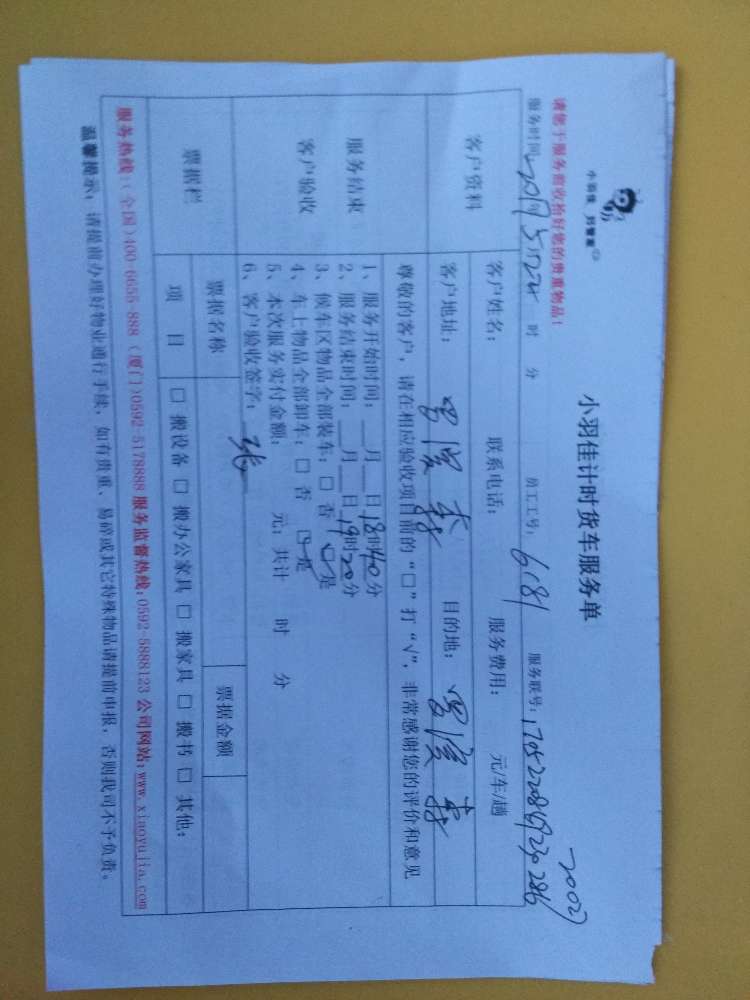 小羽佳 好管家
小羽佳计时货车服务单
请您于服务前收拾好您的贵重物品！
服务时间: 时 分 员工工号: 6181 服务联号:
客户资料
客户姓名: 联系电话: 服务费用: 元/车/趟
客户地址: 目的地:
尊敬的客户，请在相应验收项目前的“□”打“√”，非常感谢您的评价和意见
服务结束
客户验收
1、服务开始时间: __月__日18时40分
2、服务结束时间: __月__日19时20分
3、候车区物品全部装车: □ 否 □是
4、车上物品全部卸车: □ 否 □是
5、本次服务实付金额: 元; 共计 时 分
6、客户验收签字: 张
票据栏
票据名称 票据金额
项 目 □ 搬设备 □ 搬办公家具 □ 搬家具 □ 搬书 □ 其他:
服务热线: (全国)400-6655-888 (厦门)0592-5178888 服务监督热线: 0592-5888123 公司网站: www.xiaoyujia.com
温馨提示: 请提前办理好物业通行手续，如有贵重、易碎或其它特殊物品请提前申报，否则我司不予负责。